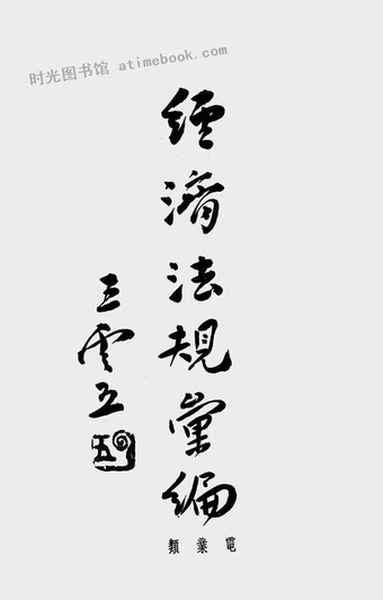 时光图书馆 atimebook.com
經濟法規彙編
王雲五
五
電業類